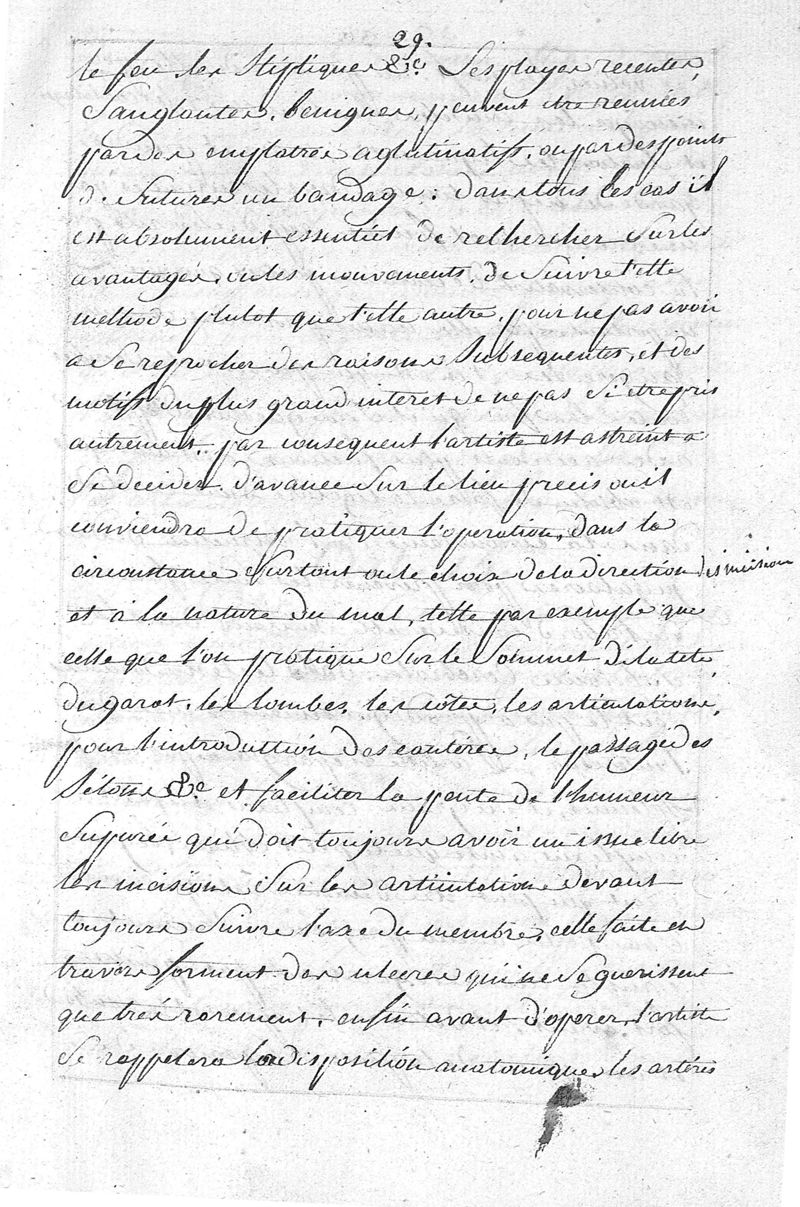 29.
le feu les stiptiques &c. Les playes recentes,
Sanglantes, benignes, peuvent etre reunies
par des emplatres aglutinatifs, ou par des points
de Sutures un bandage : dans tous les cas il
est absolument essentiel de rechercher Sur les
avantages, ou les mouvements, de Suivre telle
methode plutot que telle autre, pour ne pas avoir
a Se reprocher des raisons Subsequentes, et des
motifs du plus grand interet de ne pas S'i etre pris
autrement, par consequent l'artiste est astreint a
Se decider d'avance Sur le lieu precis ou il
conviendra de pratiquer l'operation, dans la
circonstance Surtout ou le choix de la direction des incisions
et a la nature du mal, telle par exemple que
celle que l'on pratique Sur le Sommet de la tete
du garot, les lombes, les côtes, les articulations,
pour l'introduction des cautéres, le passage des
Sétons &c. et faciliter la pente de l'humeur
Supurée qui doit toujours avoir un issue libre
les incisions Sur les articulations devant
toujours Suivre l'axe du membre, celle faite en
travers forment des ulceres qui ne Se guerissent
que trés rarement, enfin avant d'operer, l'artiste
Se rappelera la disposition anatomique, les artéres